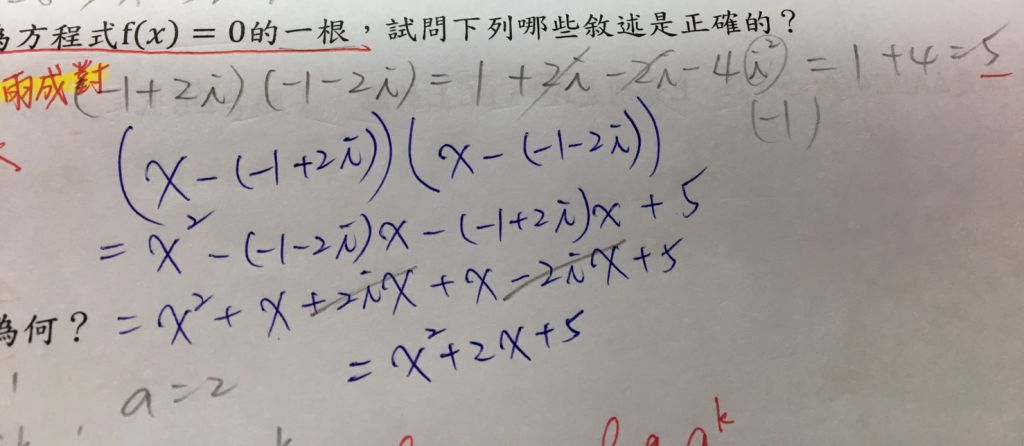 為方程式f(x) = 0的一根，試問下列哪些敘述是正確的？
兩成對
(-1+2i)(-1-2i) = 1+2i-2i-4i² = 1+4=5
(-1)
(x-(-1+2i))(x-(-1-2i))
= x²-(-1-2i)x-(-1+2i)x+5
= x²+x+2ix+x-2ix+5
為何？
= x²+2x+5
a=2